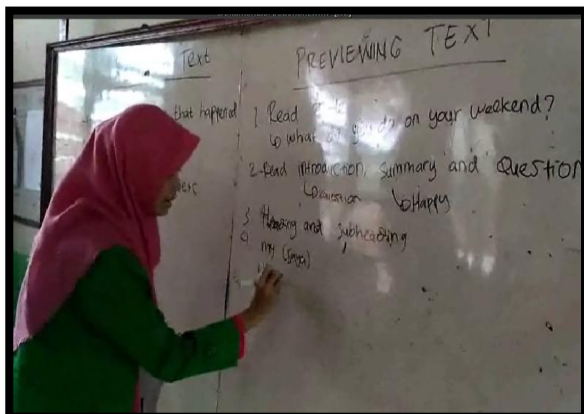 Text
that happened
PREVIEWING TEXT
1. Read
↳ what do you do on your weekend?
2. Read introduction, summary and Question
↳ Question ↳ Happy
3. Heading and subheading
4. my (saya)